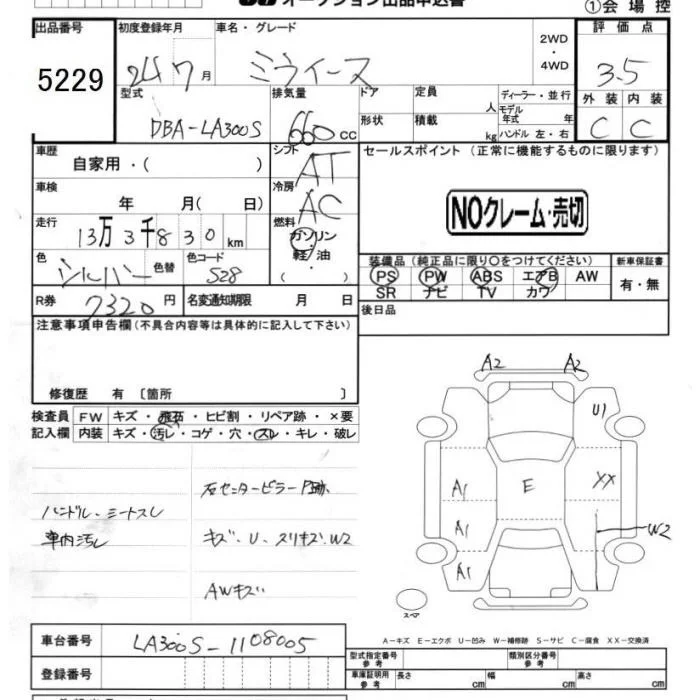 オークション出品申込書
①会場控
出品番号
5229
初度登録年月
24 7月
車名・グレード
ミライース
2WD
・
4WD
評価点
3.5
外装 内装
C C
型式
DBA-LA300S
排気量
660cc
ドア
定員
人
形状
積載
kg
ディーラー・並行
モデル
年式 年
ハンドル 左・右
車歴
自家用・( )
シフト
AT
車検
年 月( 日)
冷房
AC
走行
13万3千830km
燃料
ガソリン
軽/油
( )
色
シルバー
色替
色コード
S28
R券
7320円
名変通知期限 月 日
セールスポイント(正常に機能するものに限ります)
NOクレーム・売切
装備品(純正品に限り○をつけてください)
新車保証書
PS PW ABS エアB AW
SR ナビ TV カワ
有・無
後日品
注意事項申告欄(不具合内容等は具体的に記入して下さい)
修復歴 有〔箇所 〕
検査員
記入欄
FW キズ・飛石・ヒビ割・リペア跡・×要
内装 キズ・汚レ・コゲ・穴・スレ・キレ・破レ
右センターピラー
ハンドル・シートスレ
車内汚レ
キズ・U・スリキズ・W2
AWキズ
A2 A2
U1
A1 E XX
A1 W2
A1
スペア
A-キズ E-エクボ U-凹み W-補修跡 S-サビ C-腐食 XX-交換済
車台番号
LA300S-1108005
登録番号
型式指定番号
参考
類別区分番号
参考
車庫証明用
参考
長さ cm 幅 cm 高さ cm